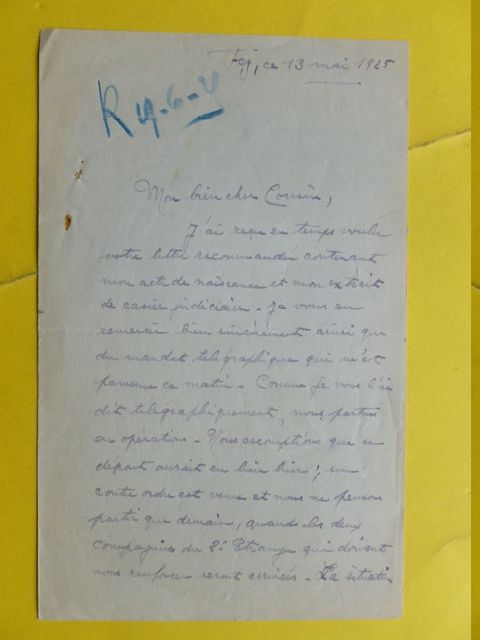 Fez, ce 13 mai 1925
R 19-6-
Mon bien cher Cousin,
J'ai reçu en temps voulu
votre lettre recommandée contenant
mon acte de naissance et mon extrait
de casier judiciaire - Je vous en
remercie bien sincèrement ainsi que
du mandat télégraphique qui m'est
parvenu ce matin - Comme je vous l'ai
dit télégraphiquement, nous partons
en opération - Nous escomptions que ce
départ aurait eu lieu hier ; un
contre ordre est venu et nous ne pensons
partir que demain, quand les deux
compagnies du 2e Etranger qui doivent
nous renforcer seront arrivées - La situation